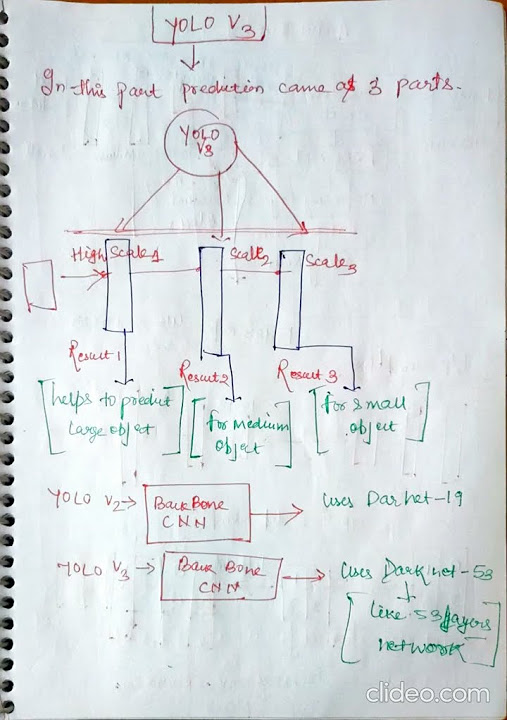 YOLO V3
In this part predition came as 3 parts.
YOLO
V3
High Scale1
Scale2
Scale3
Result 1
Result 2
Result 3
helps to predict
large object
for medium
object
for small
object
YOLO V2 → BackBone
CNN
Uses Darnet-19
YOLO V3 → Back Bone
CNN
Uses Darknet-53
Like 53 layers
network
clideo.com